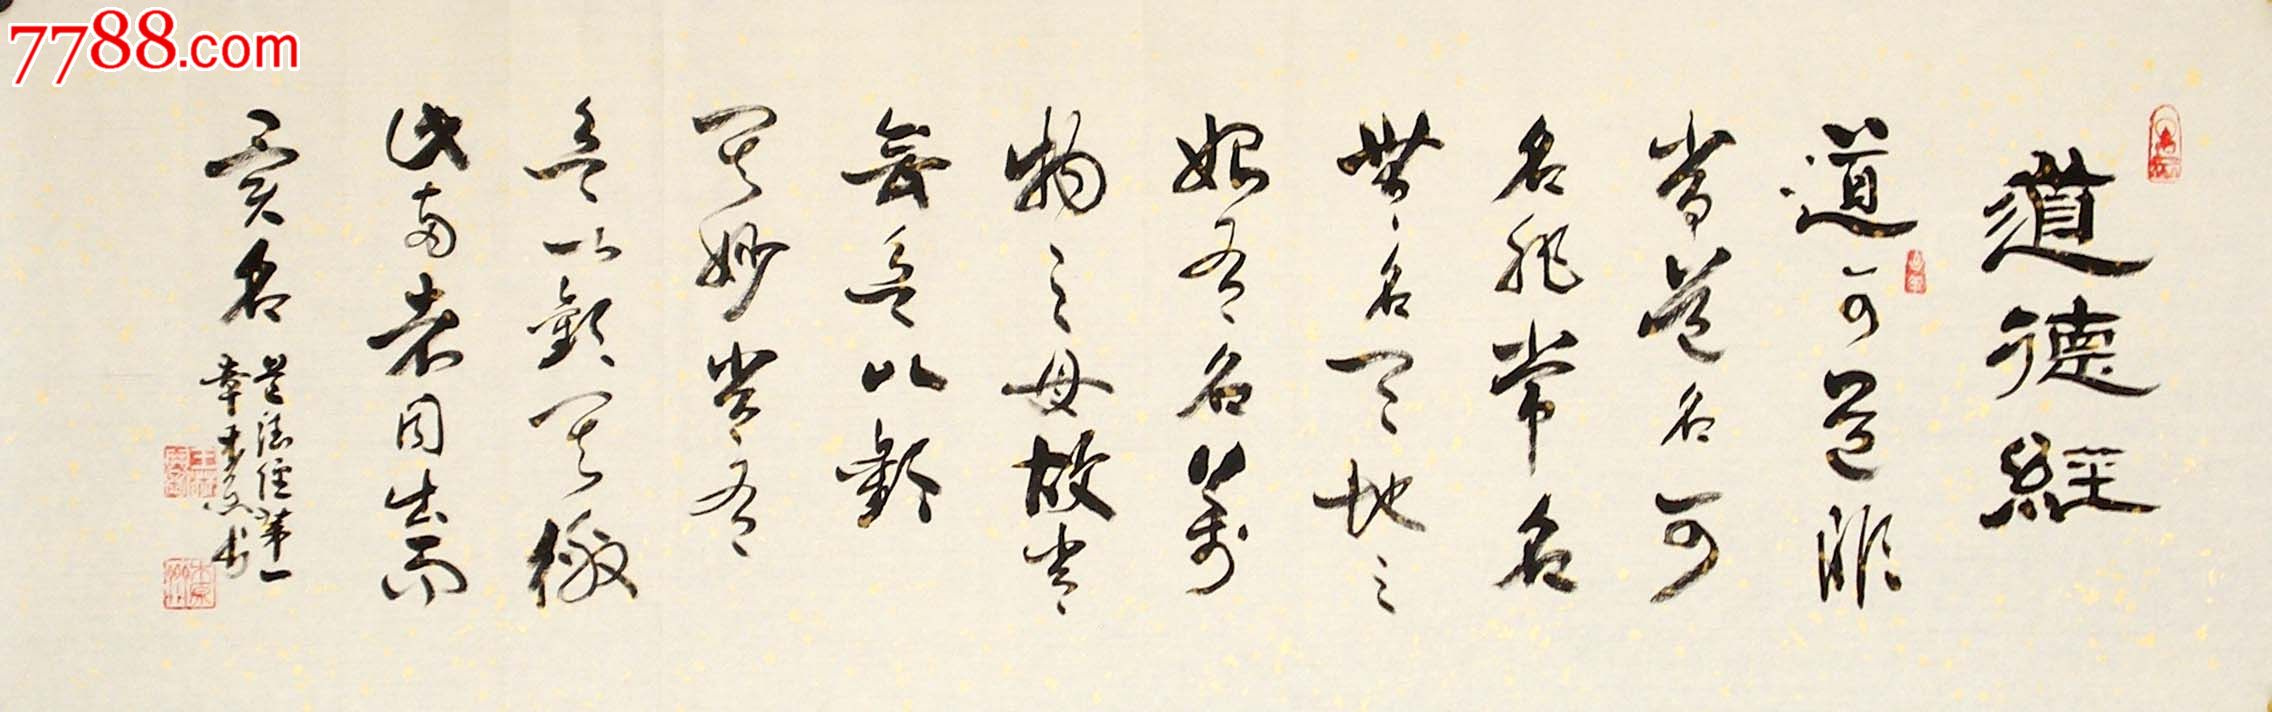 7788.com
道德經
道可道非
常道名可
名非常名
無名天地之
始有名萬
物之母故常
無欲以觀
其妙常有
欲以觀其徼
此兩者同出而
異名
道德經第一
章 书